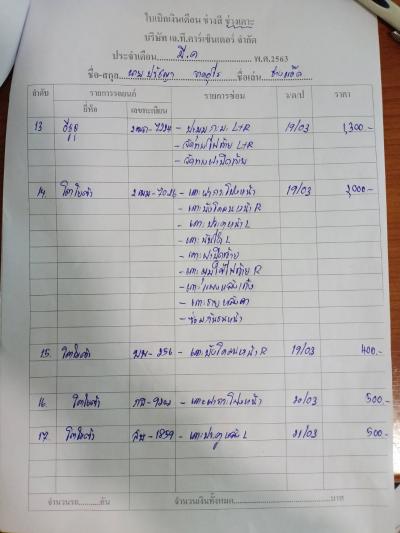 ใบเบิกเงินเดือน ช่างสี ช่างเคาะ
บริษัท เจ.ที.คาร์เซ็นเตอร์ จำกัด
ประจำเดือน มี.ค พ.ศ.2563
ชื่อ-สกุล นาย ปรัชญา ชื่อเล่น
ลำดับ รายการรถยนต์ รายการซ่อม ว/ด/ป ราคา
ยี่ห้อ เลขทะเบียน
13 อีซูซุ L+R 19/03 1,300.-
L+R
14. โตโยต้า - เคาะฝากระโปรงหน้า 19/03 2,000.-
- เคาะบังโคลนหน้า R
- เคาะประตูหน้า L
- เคาะบันได L
- เคาะฝาปิดท้าย
- เคาะมุมไฟท้าย R
- เคาะแผงหลังเก๋ง
- เคาะราง หลังคา
- ซ่อมกันชนหน้า
15. โตโยต้า - 256 - เคาะบังโคลนหน้า R 19/03 400.-
16. โตโยต้า - เคาะฝากระโปรงหน้า 20/03 500.-
17. โตโยต้า - 1859 - เคาะประตูหลัง L 21/03 500.-
จำนวนรถ..........คัน จำนวนเงินทั้งหมด..............................บาท